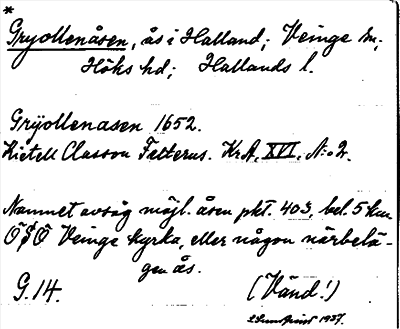 *
Gryollenåsen, ås i Halland; Veinge sn;
Höks hd; Hallands l.
Grÿollenasen 1652.
Kietell Classon Felterus. KrA, XVI, N:o 2.
Namnet avsåg möjl. åsen pkt. 403, bel. 5 km
ÖSÖ Veinge kyrka, eller någon närbelä-
gen ås.
G. 14.
(Vänd!)
1937.